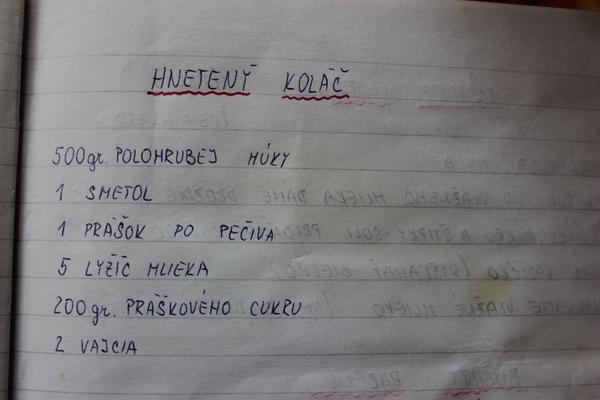 HNETENÝ KOLÁČ
500gr. POLOHRUBEJ MÚKY
1 SMETOL
1 PRÁŠOK PO PEČIVA
5 LYŽÍC MLIEKA
200gr. PRÁŠKOVÉHO CUKRU
2 VAJCIA